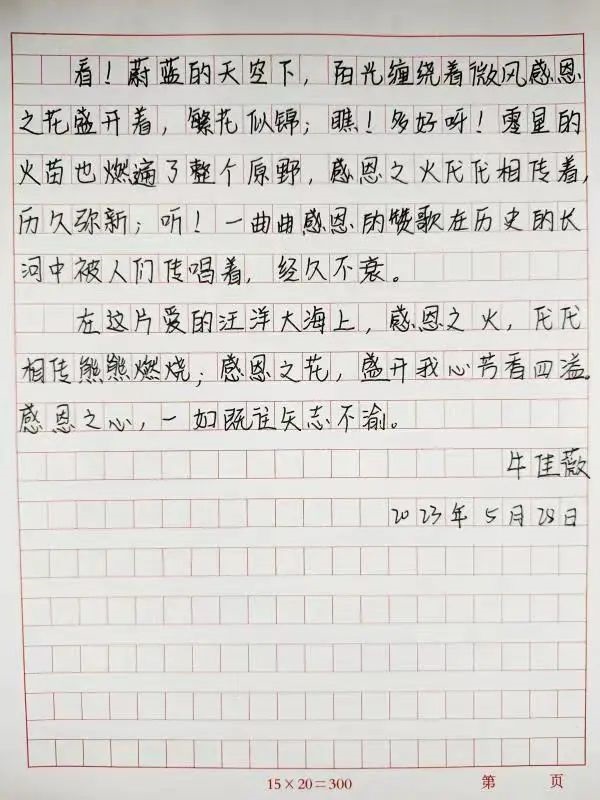 看！蔚蓝的天空下，阳光缠绕着微风感恩
之花盛开着，繁花似锦；瞧！多好呀！零星的
火苗也燃遍了整个原野，感恩之火代代相传着，
历久弥新；听！一曲曲感恩的赞歌在历史的长
河中被人们传唱着，经久不衰。
在这片爱的汪洋大海上，感恩之火，代代
相传熊熊燃烧；感恩之花，盛开我心芳香四溢。
感恩之心，一如既往矢志不渝。
牛佳薇
2023年5月28日
15×20=300 第 页